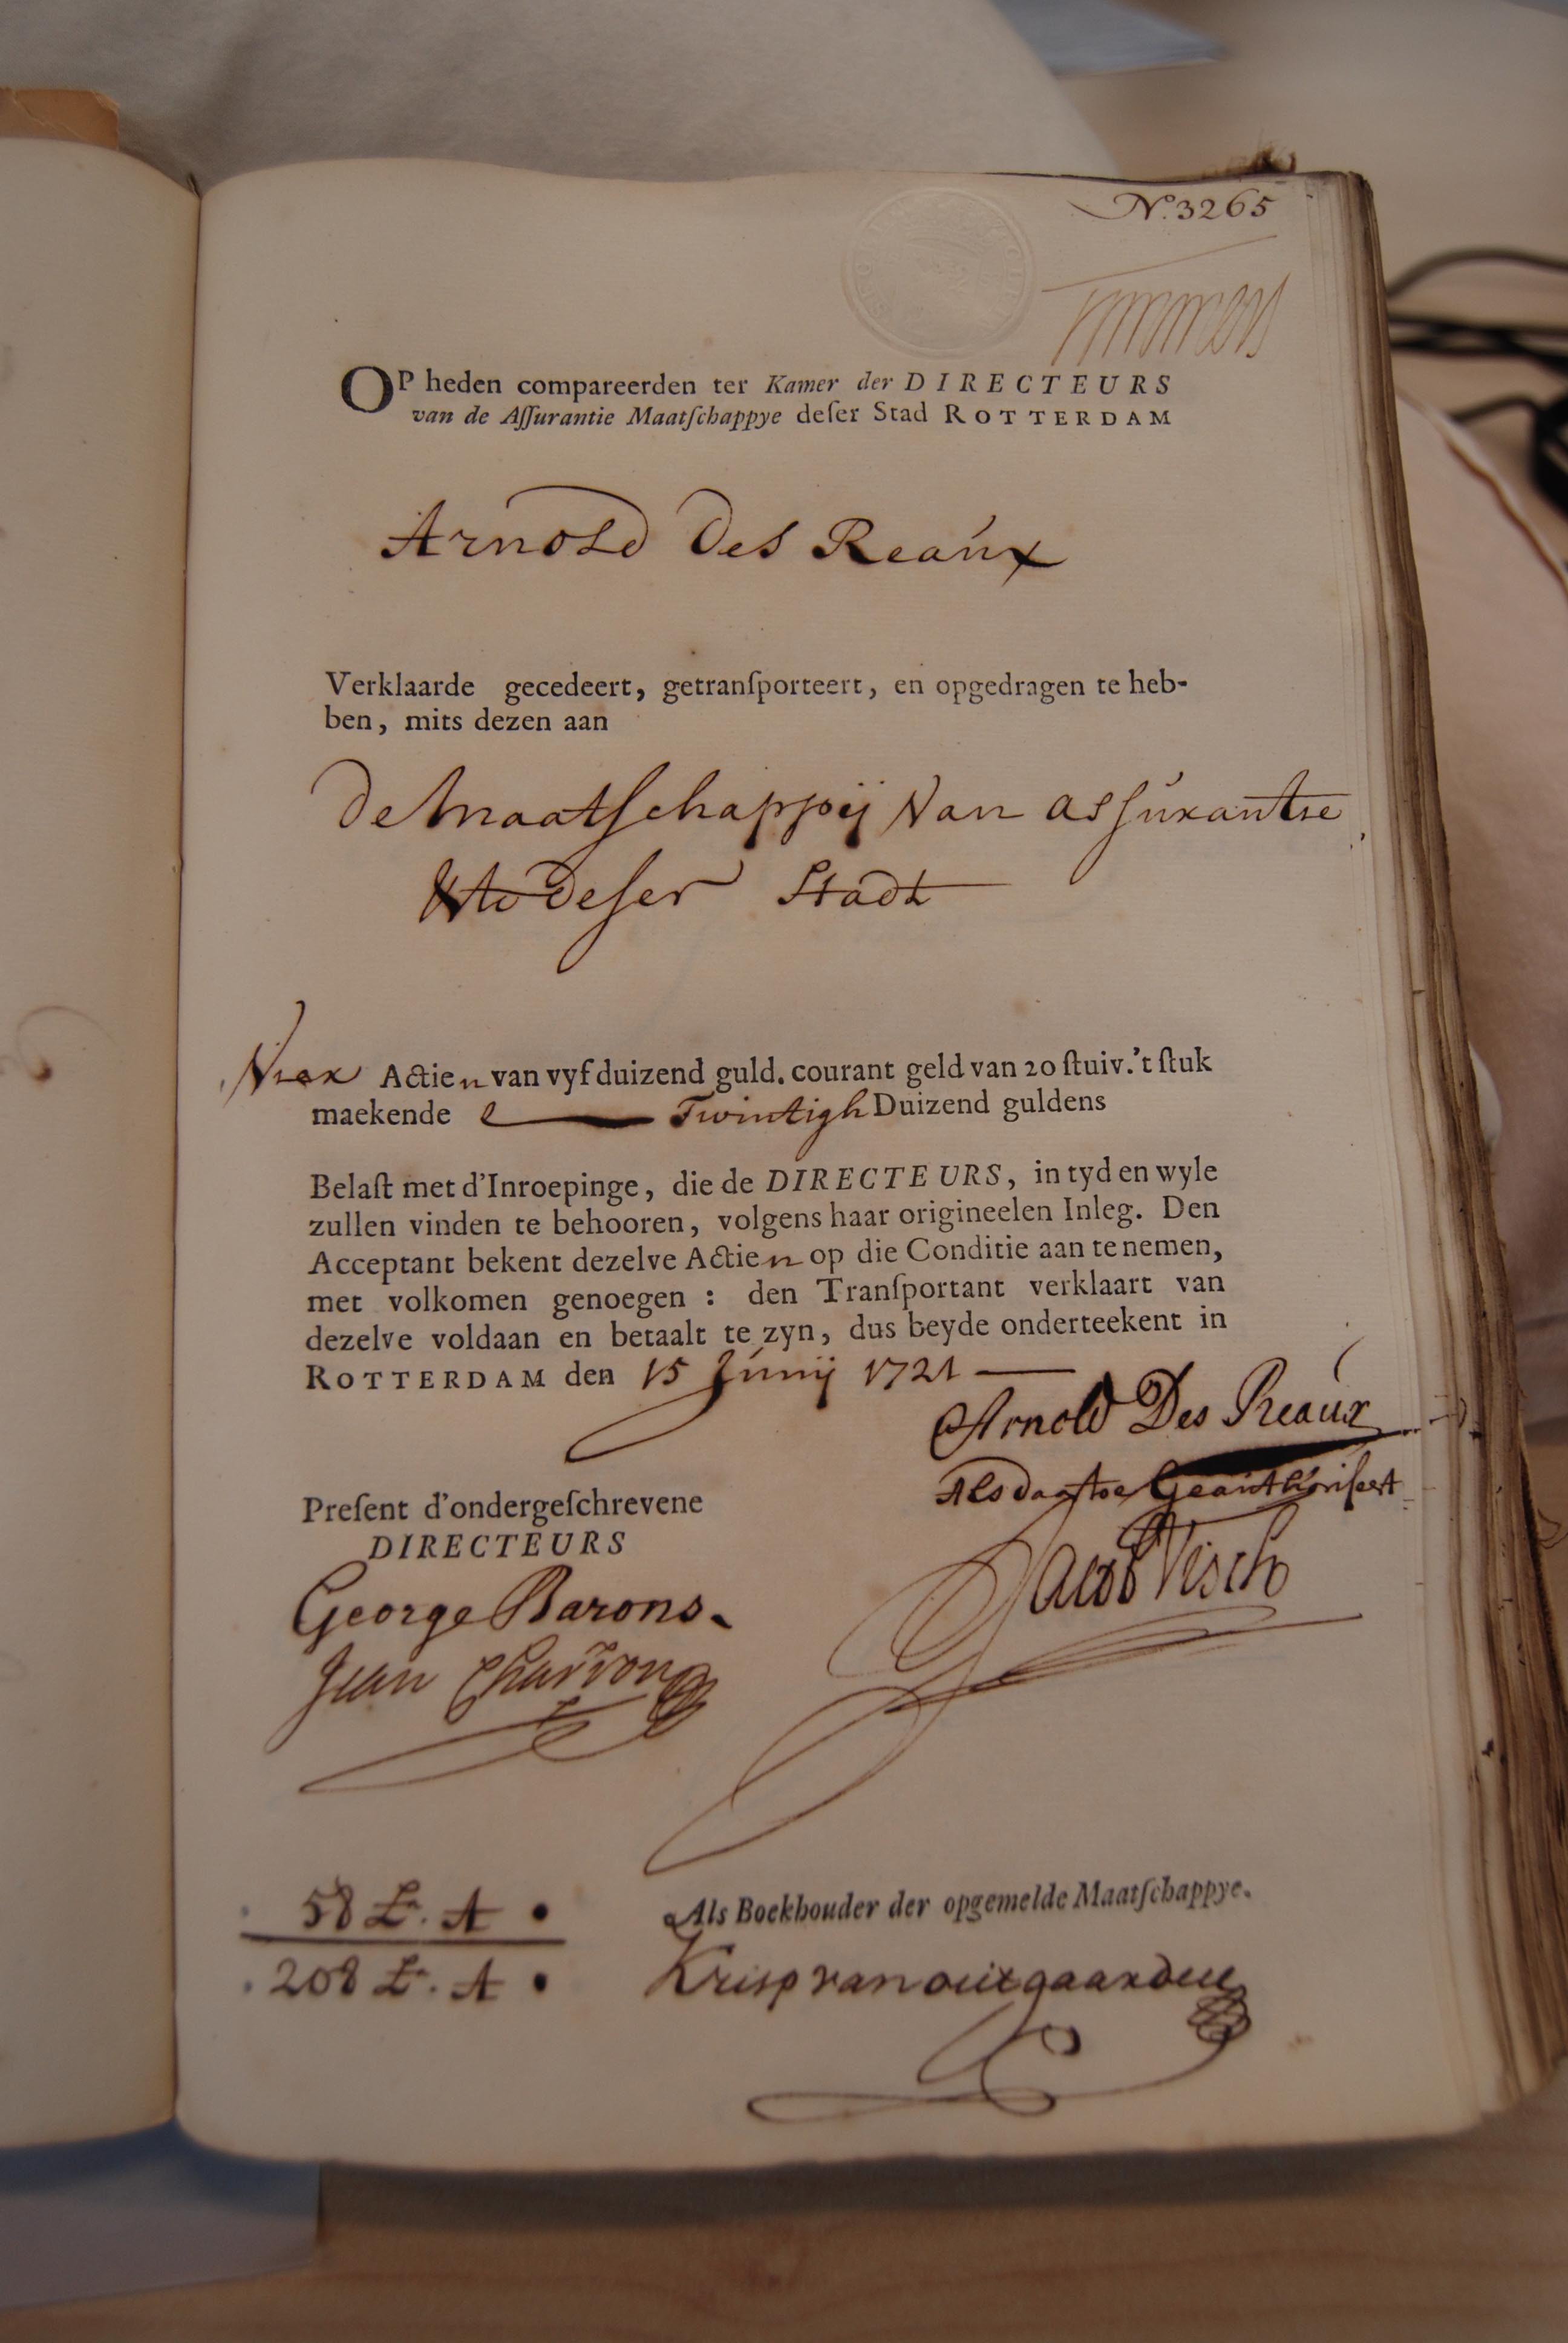 N.º 3265
OP heden compareerden ter Kamer der DIRECTEURS
van de Aſſurantie Maatſchappye deſer Stad ROTTERDAM
Arnold Des Reaúx
Verklaarde gecedeert, getranſporteert, en opgedragen te heb-
ben, mits dezen aan
De Maatſchappij Van aſſúrantie
deſer Stadt
Vier Actien van vyf duizend guld. courant geld van 20 ſtuiv. 't ſtuk
maekende Twintigh Duizend guldens
Belaſt met d'Inroepinge, die de DIRECTEURS, in tyd en wyle
zullen vinden te behooren, volgens haar origineelen Inleg. Den
Acceptant bekent dezelve Actien op die Conditie aan te nemen,
met volkomen genoegen : den Tranſportant verklaart van
dezelve voldaan en betaalt te zyn, dus beyde onderteekent in
ROTTERDAM den 15 Júnij 1721
Arnold Des Reaúx
Als daartoe Geaúthoriſeert
Jacob Visch
Preſent d'ondergeſchrevene
DIRECTEURS
George Barons.
Jean Charron
58 Lr. A
208 Lr. A
Als Boekhouder der opgemelde Maatſchappye.
Krisp van outgaarden